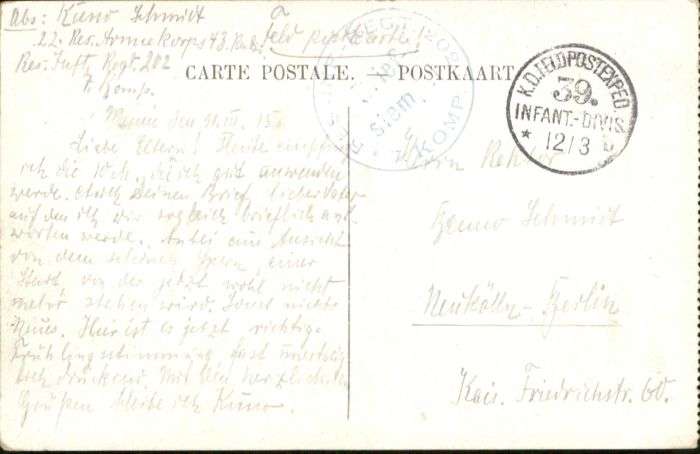 Abs: Kuno Schmidt
22. Res. Armeekorps 43. Res.
Res. Inftr. Regt. 202
Komp.
Feldpostkarte!
CARTE POSTALE. — POSTKAART
K.D. FELDPOSTEXPED.
39.
INFANT.-DIVIS.
* 12/3
KOMP.
den 11. III. 15.
Liebe Eltern! Heute
ich die 10 M., die ich gut anwenden
werde. Auch Deinen Brief, lieber Vater
auf den ich Dir sogleich brieflich ant-
worten werde. Anbei eine Ansicht
von dem schönen Ypern, einer
Stadt, von der jetzt wohl nicht
mehr stehen wird. Sonst nichts
Neues. Hier ist es jetzt richtige
Frühlingsstimmung, fast
drückend. Mit den herzlichsten
Grüßen bleibe ich Kuno.
Herrn Rektor
Benno Schmidt
Neukölln-Berlin
Kais. Friedrichstr. 60.